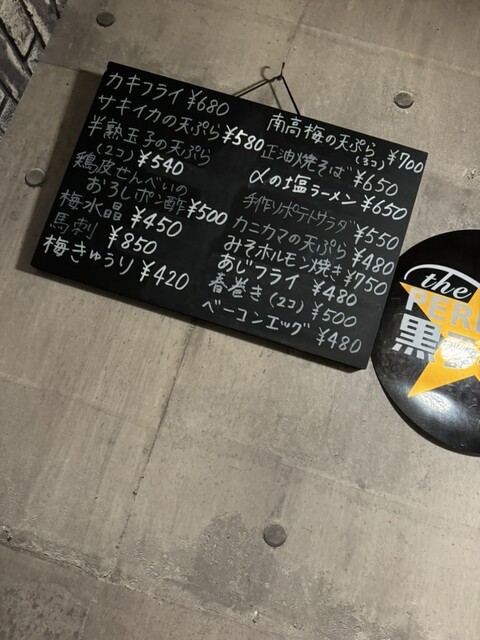 カキフライ ¥680
サキイカの天ぷら ¥580
半熟玉子の天ぷら
(2コ) ¥540
鶏皮せんべいの
おろしポン酢 ¥500
梅水晶 ¥450
馬刺 ¥850
梅きゅうり ¥420
南高梅の天ぷら
(3コ) ¥700
正油焼そば ¥650
〆の塩ラーメン ¥650
手作りポテトサラダ ¥550
カニカマの天ぷら ¥480
みそホルモン焼き ¥750
あじフライ ¥480
春巻き(2コ) ¥500
ベーコンエッグ ¥480
the
PER
黒